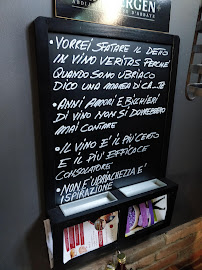 BERGEN
• VORREI SFATARE IL DETTO
IN VINO VERITAS PERCHÉ
QUANDO SONO UBRIACO
DICO UNA MAREA DI CA..TE
• ANNI AMORI E BICHIERI
DI VINO NON SI DOVREBBERO
MAI CONTARE
• IL VINO E' IL PIU' CERTO
E IL PIU' EFFICACE
CONSOLATORE
• NON E' UBRIACHEZZA E'
ISPIRAZIONE